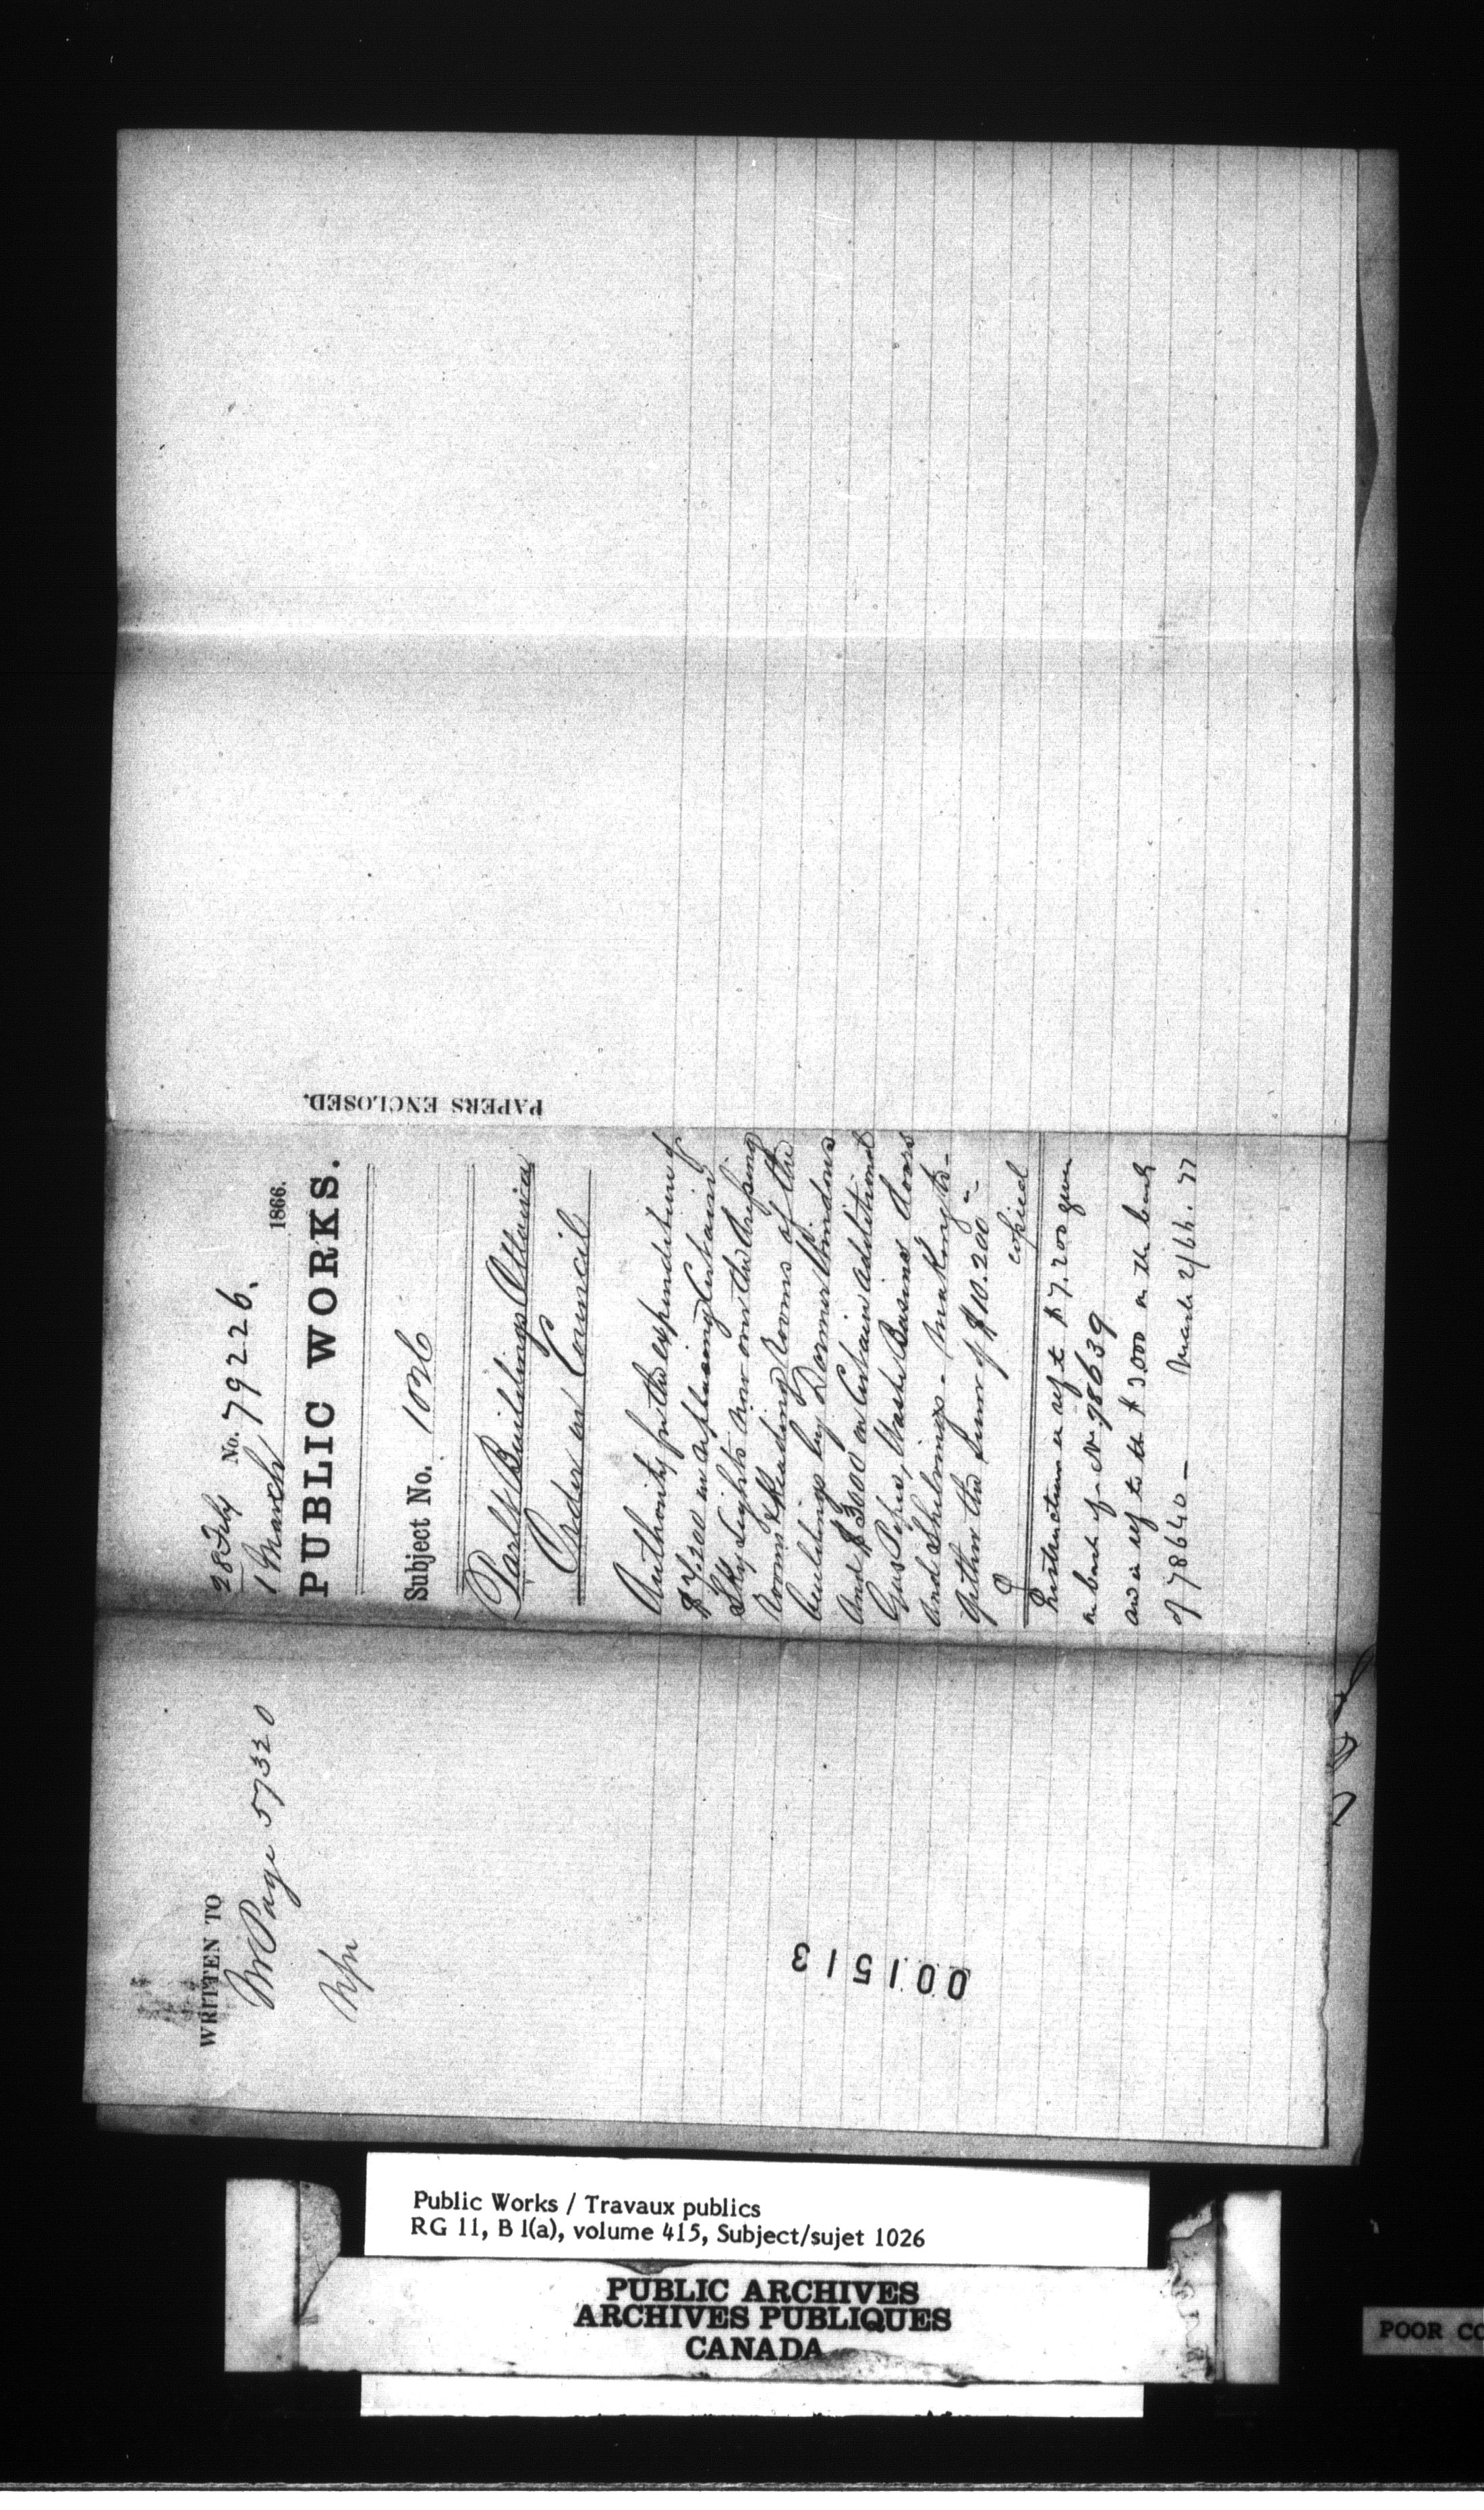 28 Feby
No. 79226.
1 March 1866.
PUBLIC WORKS.
Subject No. 1026
Parlt Buildings Ottawa
Order in Council
Authority for the expenditure of
$7,200 in replacing certain
Sky Lights now over the dressing
rooms & Reading rooms of the
buildings by Dormer Windows
And $3000 on Certain additional
Gas Pipes, Wash Basins doors
and Shelvings. Making to-
gether the sum of $10.200.-
copied
Instructions in ref to $7.200 given
on back of No 78639
and in ref to the $3,000 on the back
of 78640 — March 2/66.
PAPERS ENCLOSED.
WRITTEN TO
Mr Page 57320
001513
Public Works / Travaux publics
RG 11, B 1(a), volume 415, Subject/sujet 1026
PUBLIC ARCHIVES
ARCHIVES PUBLIQUES
CANADA
POOR CO